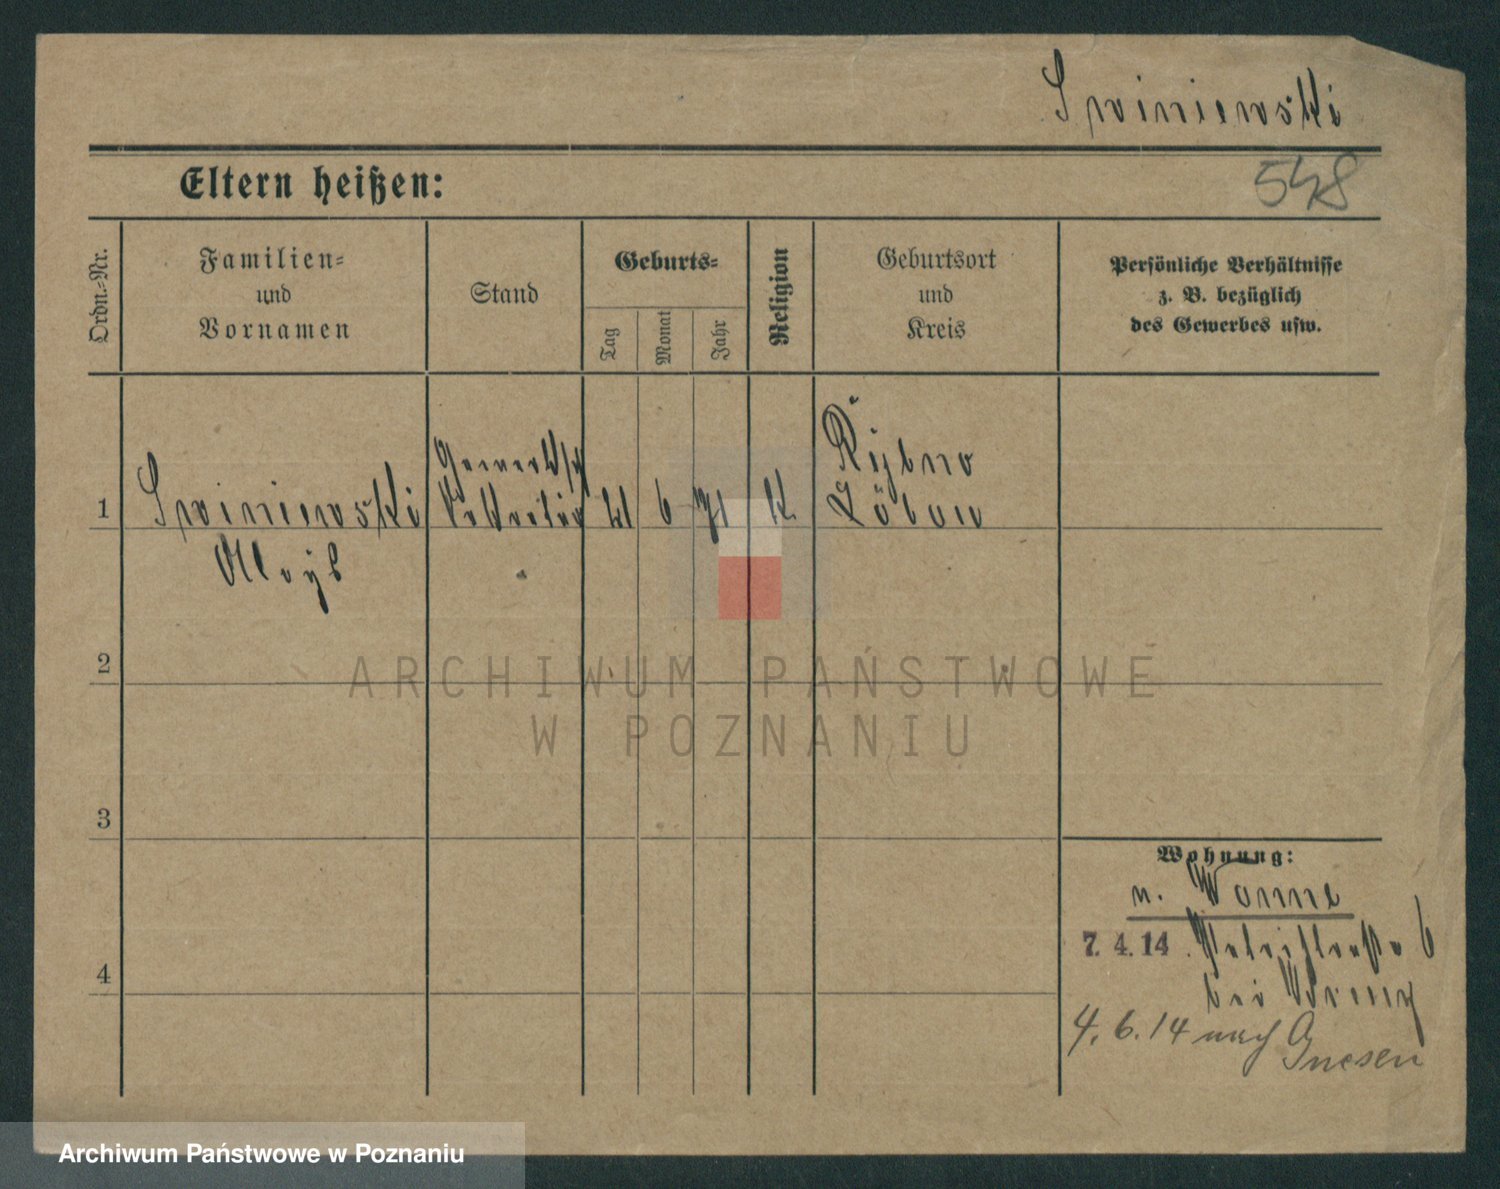 Swiniewski
548
Eltern heißen:
Ordn.-Nr.
Familien-
und
Vornamen
Stand
Geburts-
Tag
Monat
Jahr
Religion
Geburtsort
und
Kreis
Persönliche Verhältnisse
z. B. bezüglich
des Gewerbes usw.
1
Swiniewski
Aloys
Sekretär
21
6
71
K.
Rybno
Löbau
2
3
4
Wohnung:
v.
7. 4. 14.
6
bei
4. 6. 14 nach Gnesen
ARCHIWUM PAŃSTWOWE
W POZNANIU
Archiwum Państwowe w Poznaniu